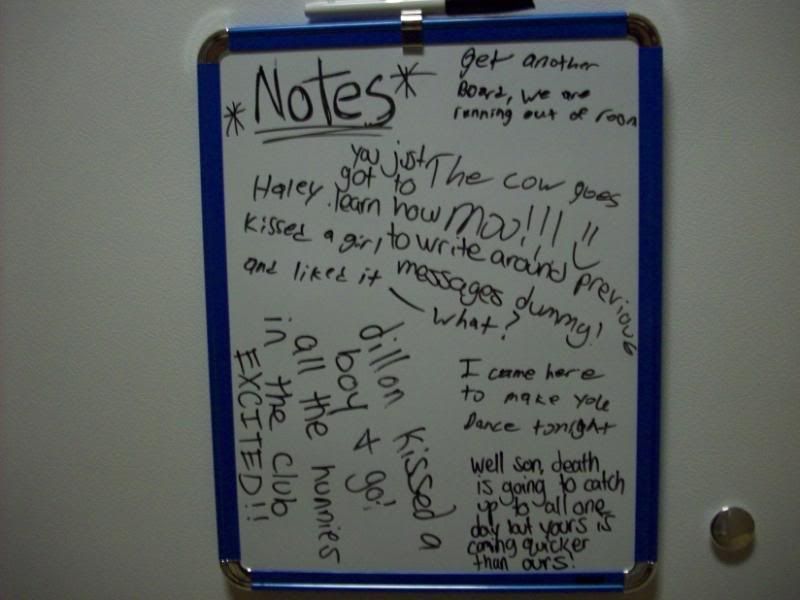 *Notes*
get another
Board, we are
running out of room
The cow goes
Moo!!!
you just
got to
learn how
to write around previous
messages dummy!
Haley
kissed a girl
and liked it
What?
dillon kissed a
boy & go!
all the hunnies
in the club
EXCITED!!
I came here
to make you
Dance tonight
well son, death
is going to catch
up to all one
day but yours is
coming quicker
than ours!